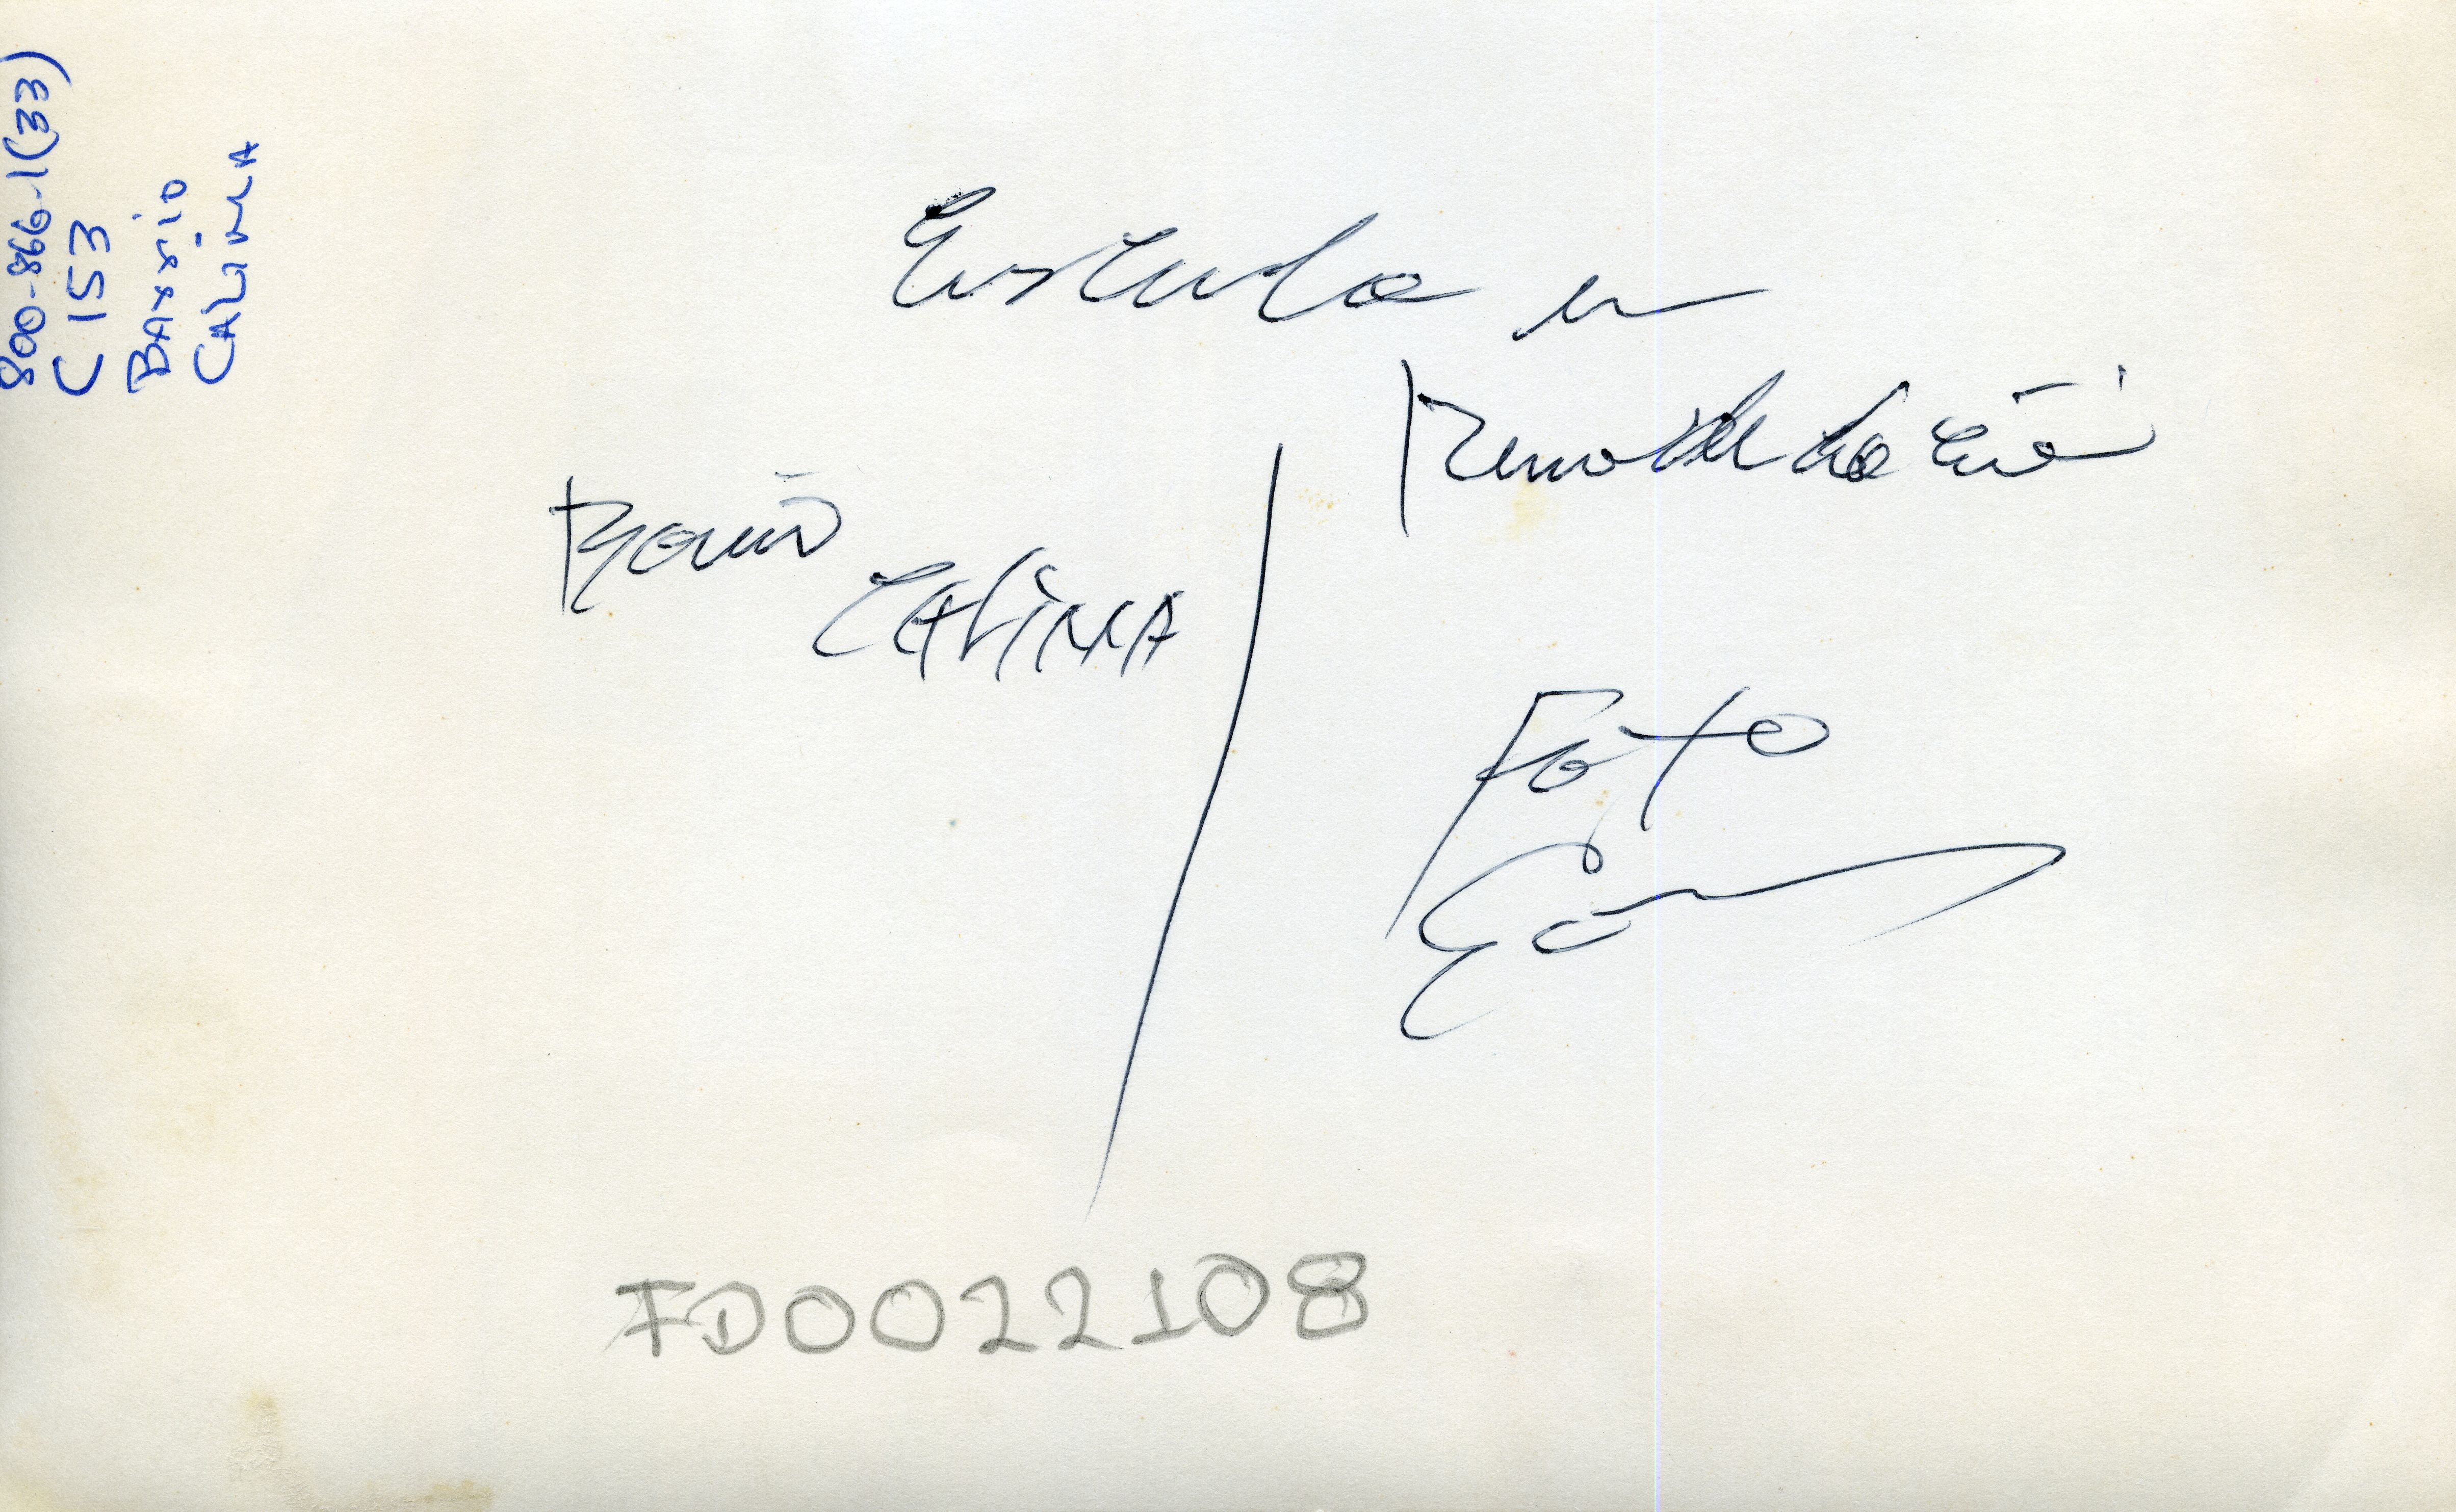 800-866-1(33)
C 153
Barrio
CALIMA
Escuela en
Remodelación
Barrio
CALIMA
Foto
FD0022108